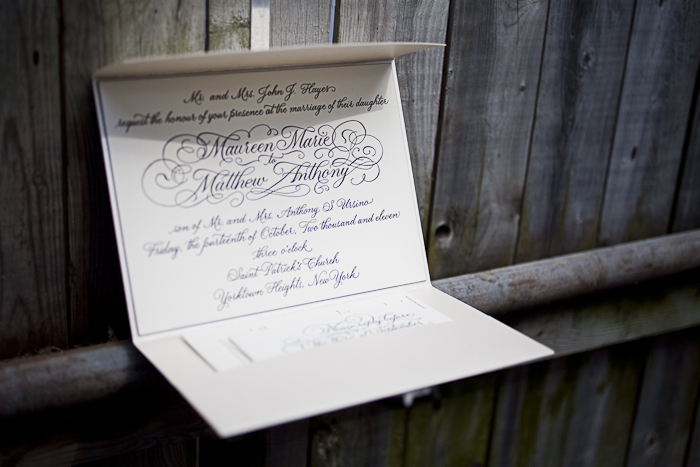 Mr. and Mrs. John J. Hayes
request the honour of your presence at the marriage of their daughter
Maureen Marie
to
Matthew Anthony
son of Mr. and Mrs. Anthony S Ursino
Friday, the fourteenth of October, Two thousand and eleven
three o'clock
Saint Patrick's Church
Yorktown Heights, New York
Please reply before